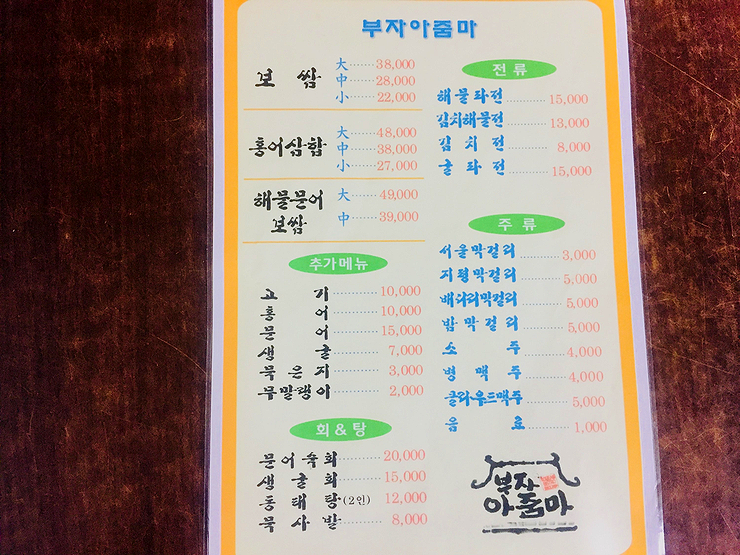 부자아줌마
보 쌈
大 ······ 38,000
中 ······ 28,000
小 ······ 22,000
홍어삼합
大 ······ 48,000
中 ······ 38,000
小 ······ 27,000
해물문어
보쌈
大 ······ 49,000
中 ······ 39,000
추가메뉴
고 기 ······ 10,000
홍 어 ······ 10,000
문 어 ······ 15,000
생 굴 ······ 7,000
묵 은 지 ······ 3,000
무말랭이 ······ 2,000
회 & 탕
문어숙회 ······ 20,000
생 굴 회 ······ 15,000
동 태 탕 (2인) 12,000
묵 사 발 ······ 8,000
전 류
해물파전 ······ 15,000
김치해물전 ······ 13,000
김 치 전 ······ 8,000
굴 파 전 ······ 15,000
주 류
서울막걸리 ······ 3,000
지평막걸리 ······ 5,000
배다리막걸리 ······ 5,000
밤 막 걸 리 ······ 5,000
소 주 ······ 4,000
병 맥 주 ······ 4,000
클라우드맥주 ······ 5,000
음 료 ······ 1,000
부자
아줌마